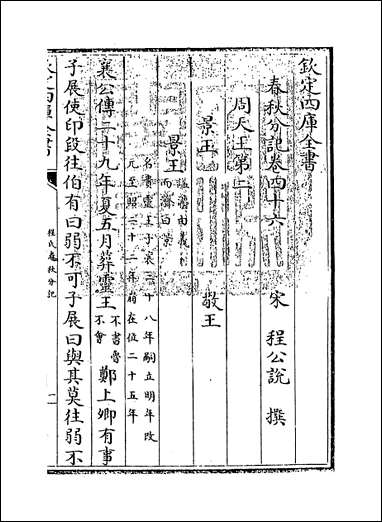 欽定四庫全書
春秋分記卷四十六
宋 程公說 撰
周天王第二
景王 敬王
景王
名貴靈王子襄二十八年嗣立明年改
元至昭二十二年崩在位二十五年
襄公傳二十九年夏五月葬靈王不書魯不會鄭上卿有事
子展使印段往伯有曰弱不可子展曰與其莫往弱不
欽定四庫全書
程氏春秋分記
一